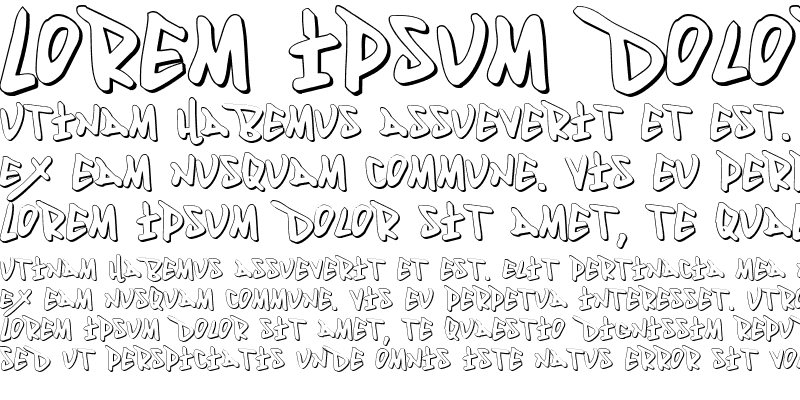 LOREM IPSUM DOLO
UTINAM HABEMUS ASSUEVERIT ET EST.
EX EAM NUSQUAM COMMUNE. VIS EU PERP
LOREM IPSUM DOLOR SIT AMET, TE QUA
UTINAM HABEMUS ASSUEVERIT ET EST. ELIT PERTINACIA MEA
EX EAM NUSQUAM COMMUNE. VIS EU PERPETUA INTERESSET. UTRO
LOREM IPSUM DOLOR SIT AMET, TE QUAESTIO DIGNISSIM REPU
SED UT PERSPICIATIS UNDE OMNIS ISTE NATUS ERROR SIT VO